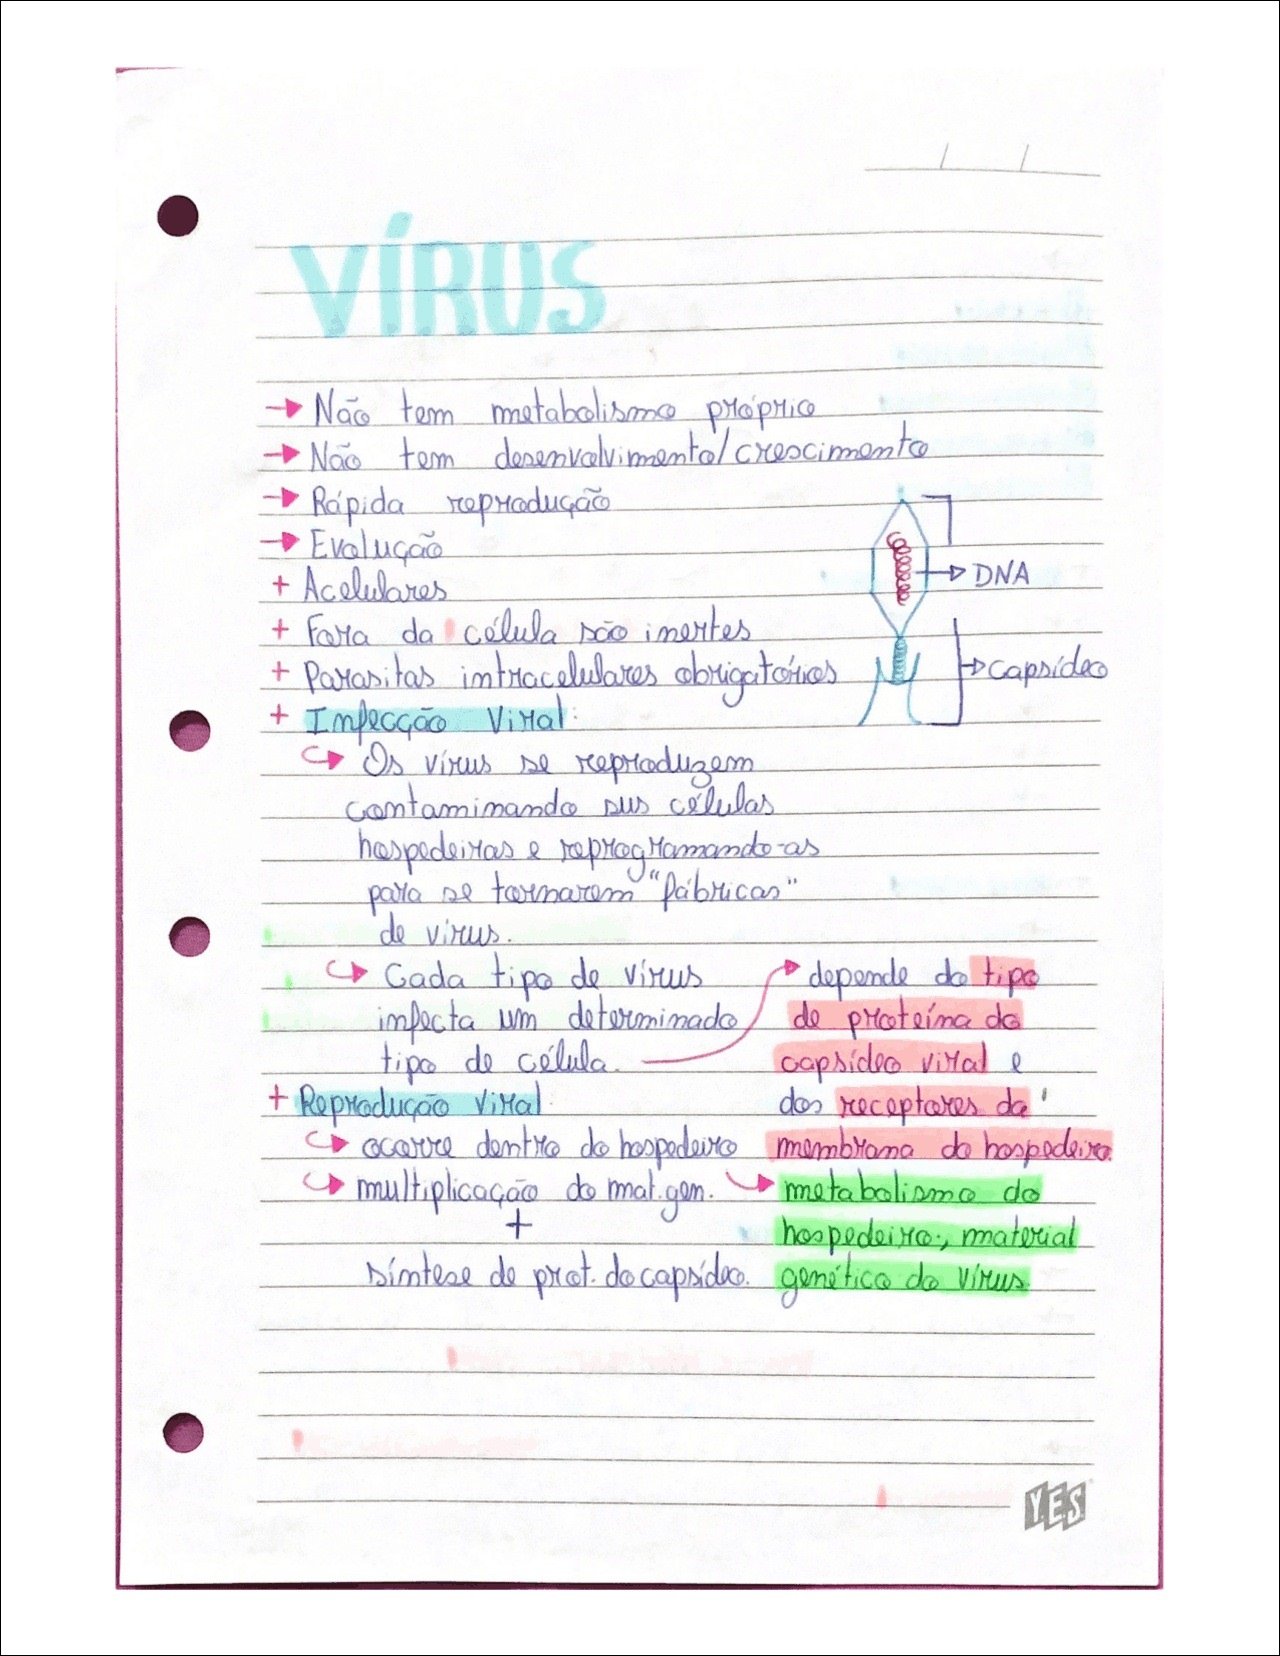 VÍRUS
→ Não tem metabolismo próprio
→ Não tem desenvolvimento/crescimento
→ Rápida reprodução
→ Evolução
+ Acelulares
→ DNA
+ Fora da célula são inertes
+ Parasitas intracelulares obrigatórios
→ capsídeo
+ Infecção Viral:
↪ Os vírus se reproduzem
contaminando sus células
hospedeiras e reprogramando-as
para se tornarem "fábricas"
de vírus.
↪ Cada tipo de vírus
infecta um determinado
tipo de célula.
→ depende do tipo
de proteína do
capsídeo viral e
dos receptores da
membrana do hospedeiro.
+ Reprodução Viral:
↪ ocorre dentro do hospedeiro
↪ multiplicação do mat.gen.
+
síntese de prot. do capsídeo.
→ metabolismo do
hospedeiro, material
genético do vírus
YES